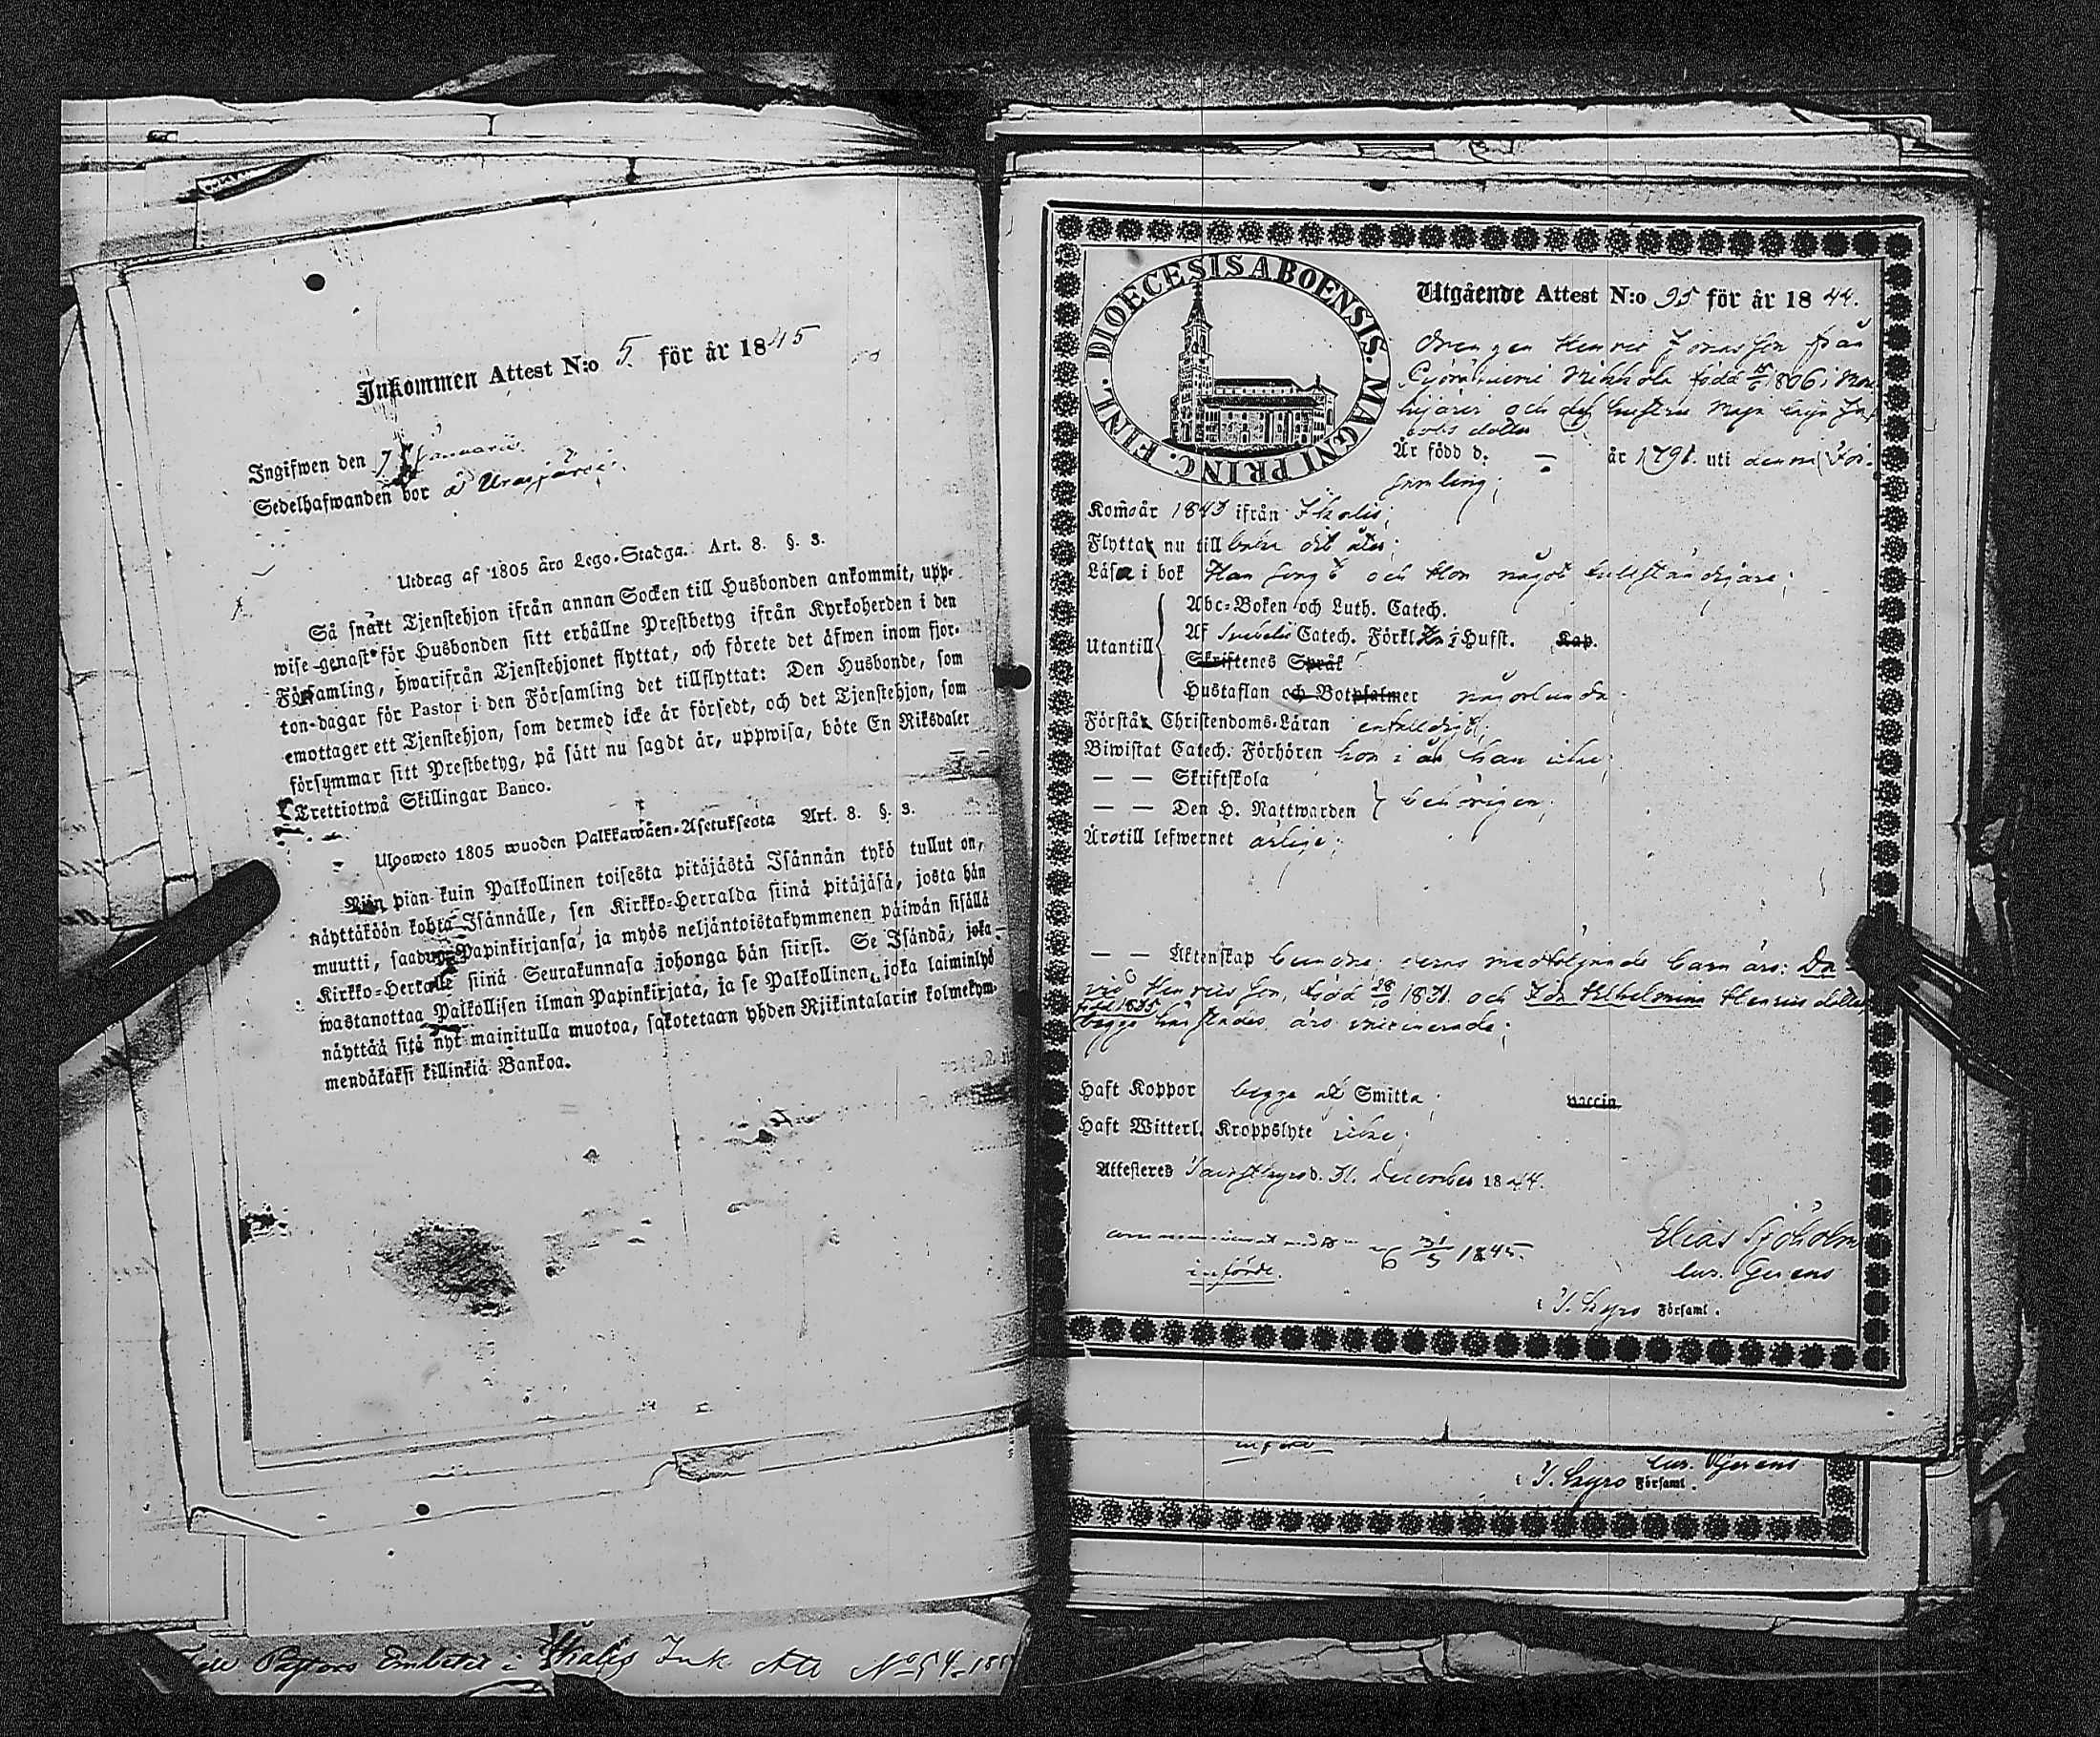 Inkommen Attest N:o 5. för år 1845
Ingifwen den 7 Januarii.
Sedelhafwanden bor å Urasjärvi.
Utdrag af 1805 års Lego-Stadga. Art. 8. §. 3.
Så snart Tjenstehjon ifrån annan Socken till Husbonden ankommit, upp-
wise genast för Husbonden sitt erhållne Prestbetyg ifrån Kyrkoherden i den
Församling, hwarifrån Tjenstehjonet flyttat, och förete det äfwen inom fjor-
ton dagar för Pastor i den Församling det tillflyttat: Den Husbonde, som
emottager ett Tjenstehjon, som dermed icke är försedt, och det Tjenstehjon, som
försymmar sitt Prestbetyg, på sätt nu sagdt är, uppwisa, böte En Riksdaler
Trettiotwå Skillingar Banco.
Ulosweto 1805 wuoden Palkkawäen-Asetuksesta Art. 8. §. 3.
Niin pian kuin Palkollinen toisesta pitäjästä Isännän tykö tullut on,
näyttäköön kohta Isännälle, sen Kirkko-Herralda siinä pitäjäsä, josta hän
muutti, saadun Papinkirjansa, ja myös neljäntoistakymmenen päiwän sisällä
Kirkko-Herralle siinä Seurakunnasa johonga hän siirsi. Se Isändä, joka
wastanottaa Palkollisen ilman Papinkirjata, ja se Palkollinen, joka laiminlyö
näyttää sitä nyt mainitulla muotoa, sakotetaan yhden Rijkintalarin kolmekym-
mendäkaksi killinkiä Bankoa.
Till Pastors Embetet i Ikalis Ink Att No 54
DIOECESIS ABOENSIS. MAGNI PRINC. FINL.
Utgående Attest N:o 95 för år 1844.
Drengen Henric Jonasson från
Nikkola född 1806 i
och dess hustru Maja Ja-
cobs dotter
År född d. — år 1791. uti denna För-
samling;
Kom år 1843 ifrån Ikalis;
Flytta nu till
Läsa i bok Han och Hon något
Abc-Boken och Luth. Catech.
Utantill Af Svebelii Catech. Förkl. Hufst. Kap.
Skriftenes Språk
Hustaflan och Botpsalmer någorlunda
Förstå Christendoms-Läran enfaldigt;
Biwistat Catech. Förhören hon i år han icke;
— — Skriftskola
— — Den H. Nattwarden behörigen;
Äro till lefwernet ärlige;
— — Äktenskap deras medföljande barn äro: Da-
vid Henricsson, född 28/10 1831 och Ida Wilhelmina Henrics dotter
född 1835
begge äro vaccinerade;
Haft Koppor begge af Smitta; vaccin.
Haft Witterl. Kroppslyte icke;
Attesteres Tavastkyro d. 31. december 1844.
31/3 1845.
införde.
Elias Sjöholm
Cur. Gerens
i T. Kyro Församl.
införd
Cur. Gerens
i T. Kyro Församl.